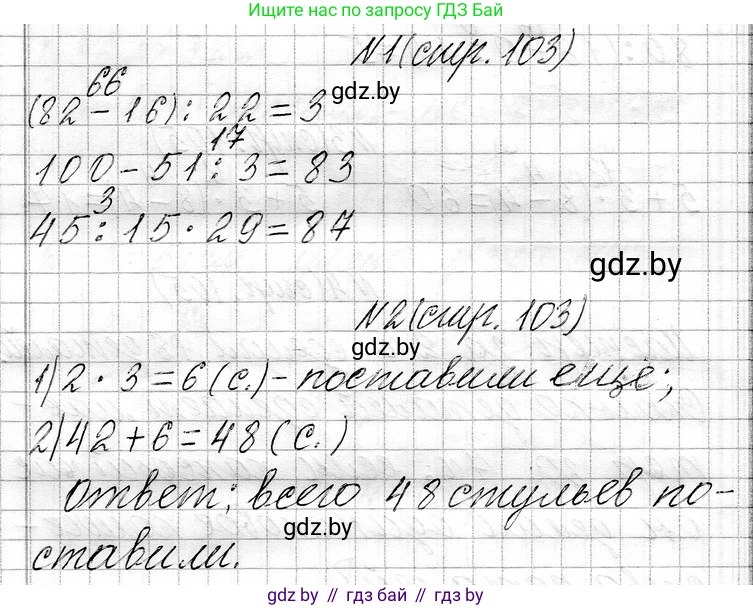 Ищите нас по запросу ГДЗ Бай
N1 (стр. 103)
gdz.by
66
(82 - 16) : 22 = 3
17
100 - 51 : 3 = 83
3
45 : 15 · 29 = 87
gdz.by
N2 (стр. 103)
gdz.by
1) 2 · 3 = 6 (с.) - поставили еще;
2) 42 + 6 = 48 (с.)
Ответ: всего 48 стульев по-
gdz.by
ставили.
gdz.by // гдз бай // gdz by